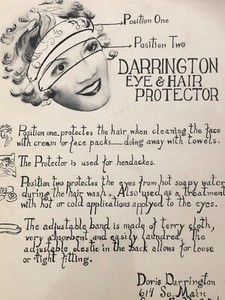 Position One
Position Two
DARRINGTON
EYE & HAIR
PROTECTOR
Position one, protects the hair when cleaning the face
with cream or face packs__doing away with towels.
The Protector is used for headaches.
Position two protects the eyes from hot soapy water
during the hair wash. Also used as a treatment
with hot or cold applications applyed to the eyes.
The adjustable band is made of terry cloth,
very absorbent and easily laundried. The
adjustable elastic in the back allows for loose
or tight fitting.
Doris Darrington
614 So. Main